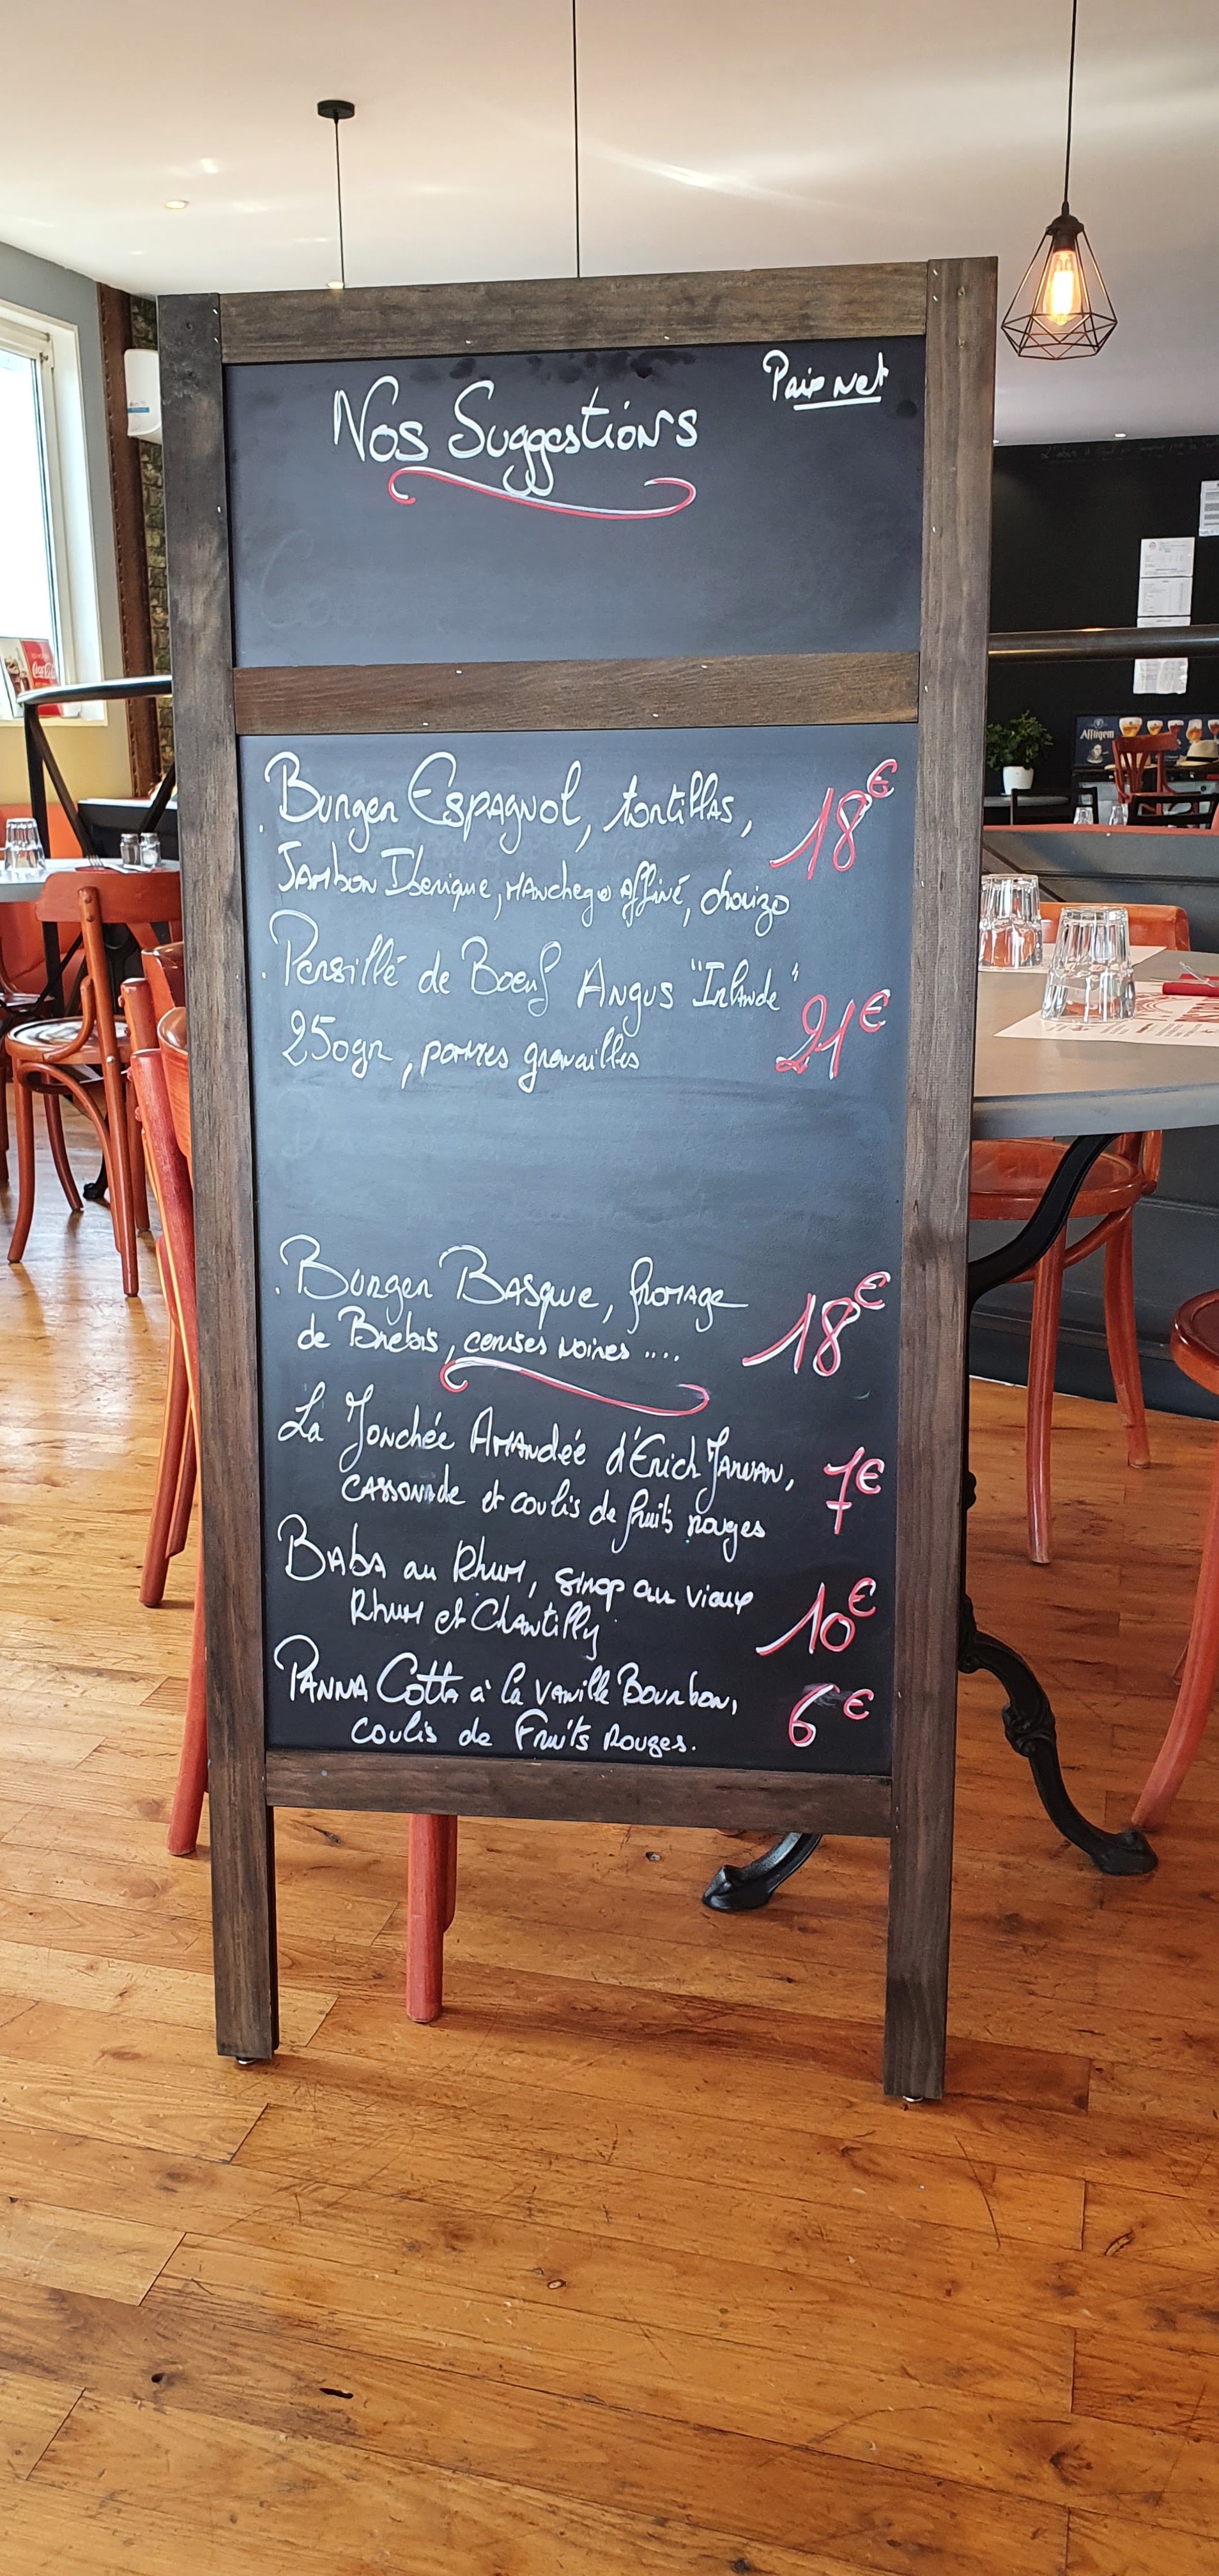 Prix net
Nos Suggestions
Burger Espagnol, tortillas, 18€
Jambon Ibérique, Manchego Affiné, chorizo
Persillé de Boeuf Angus "Irlande"
250gr, pommes grenailles 21€
Burger Basque, fromage
de Brebis, cerises noires .... 18€
La Jonchée Amandée d'Erich Jarvan, 7€
cassonade et coulis de fruits rouges
Baba au Rhum, sirop au vieux
Rhum et Chantilly 10€
Panna Cotta à la vanille Bourbon, 6€
coulis de Fruits Rouges.
Affligem
Coca-Cola